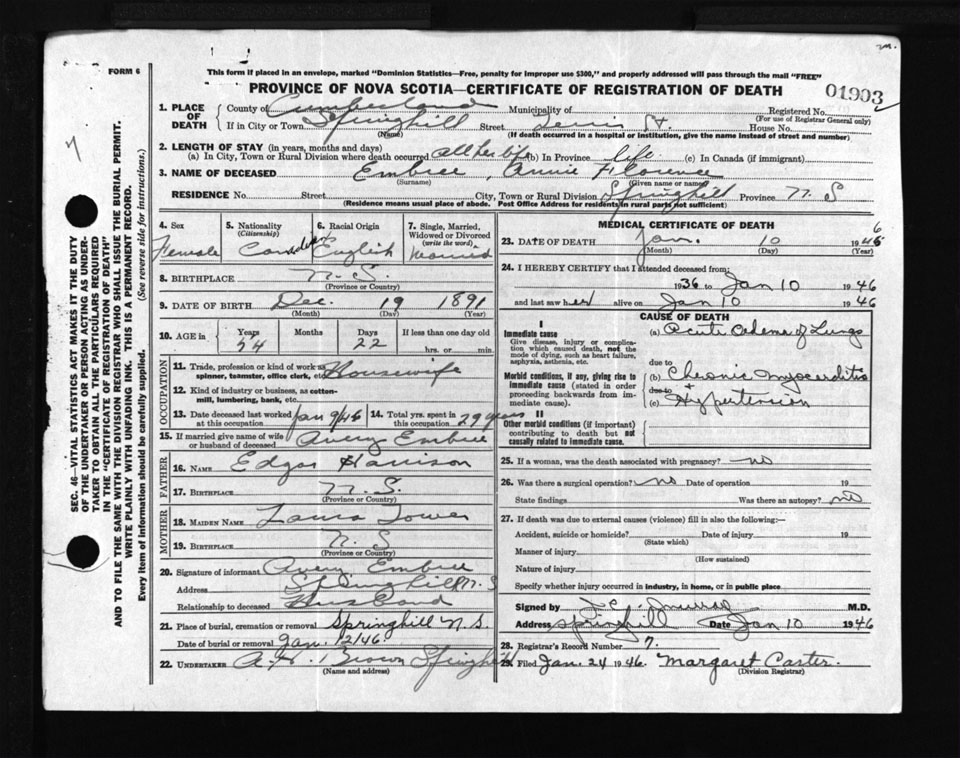 m.
FORM 6
This form if placed in an envelope, marked "Dominion Statistics—Free, penalty for improper use $300," and properly addressed will pass through the mail "FREE"
PROVINCE OF NOVA SCOTIA—CERTIFICATE OF REGISTRATION OF DEATH
01903
1. PLACE OF DEATH
County of Cumberland Municipality of Registered No.
(For use of Registrar General only)
If in City or Town Springhill Street Lewis St. House No.
(Name) (If death occurred in a hospital or institution, give the name instead of street and number)
2. LENGTH OF STAY (in years, months and days)
(a) In City, Town or Rural Division where death occurred all her life (b) In Province life (c) In Canada (if immigrant)
3. NAME OF DECEASED Embree, Annie Florence
(Surname) (Given name or names)
RESIDENCE No. Street City, Town or Rural Division Springhill Province N. S
(Residence means usual place of abode. Post Office Address for residents in rural parts not sufficient)
4. Sex
Female
5. Nationality
(Citizenship)
Canadian
6. Racial Origin
English
7. Single, Married, Widowed or Divorced
(write the word)
Married
8. BIRTHPLACE N. S.
(Province or Country)
9. DATE OF BIRTH Dec. 19 1891
(Month) (Day) (Year)
10. AGE in
Years Months Days If less than one day old
54 22 hrs. or min.
OCCUPATION
11. Trade, profession or kind of work as spinner, teamster, office clerk, etc. Housewife
12. Kind of industry or business, as cotton-mill, lumbering, bank, etc.
13. Date deceased last worked at this occupation Jan 9/46
14. Total yrs. spent in this occupation 29 years
15. If married give name of wife or husband of deceased Avery Embree
FATHER
16. NAME Edgar Harrison
17. BIRTHPLACE N. S.
(Province or Country)
MOTHER
18. MAIDEN NAME Laura Tower
19. BIRTHPLACE N. S
(Province or Country)
20. Signature of informant Avery Embree
Address Springhill N. S
Relationship to deceased Husband
21. Place of burial, cremation or removal Springhill N. S.
Date of burial or removal Jan. 12/46.
22. UNDERTAKER A. H. Brown Springhill
(Name and address)
MEDICAL CERTIFICATE OF DEATH
23. DATE OF DEATH Jan. 10 1946
(Month) (Day) (Year)
24. I HEREBY CERTIFY that I attended deceased from:
1936 to Jan 10 1946
and last saw her alive on Jan 10 1946
CAUSE OF DEATH
I
Immediate cause
Give disease, injury or complication which caused death, not the mode of dying, such as heart failure, asphyxia, asthenia, etc.
(a) Acute Oedema of Lungs
due to
Morbid conditions, if any, giving rise to immediate cause (stated in order proceeding backwards from immediate cause).
(b) Chronic Myocarditis
due to +
(c) Hypertension
II
Other morbid conditions (if important) contributing to death but not causally related to immediate cause.
25. If a woman, was the death associated with pregnancy? no
26. Was there a surgical operation? no Date of operation 19
State findings Was there an autopsy? no
27. If death was due to external causes (violence) fill in also the following:—
Accident, suicide or homicide? Date of injury 19
(State which)
Manner of injury
(How sustained)
Nature of injury
Specify whether injury occurred in industry, in home, or in public place
Signed by M.D.
Address Springhill Date Jan 10 1946
28. Registrar's Record Number 7.
29. Filed Jan. 24 1946. Margaret Carter.
(Division Registrar)
SEC. 46—VITAL STATISTICS ACT MAKES IT THE DUTY
OF THE UNDERTAKER OR PERSON ACTING AS UNDER-
TAKER TO OBTAIN ALL THE PARTICULARS REQUIRED
IN THE "CERTIFICATE OF REGISTRATION OF DEATH"
AND TO FILE THE SAME WITH THE DIVISION REGISTRAR WHO SHALL ISSUE THE BURIAL PERMIT.
WRITE PLAINLY WITH UNFADING INK. THIS IS A PERMANENT RECORD.
Every item of Information should be carefully supplied. (See reverse side for instructions.)